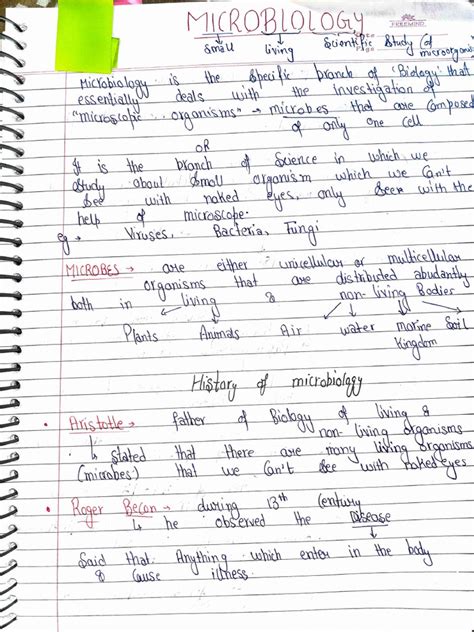 MICROBIOLOGY
FREEMIND
small living Scientific Study (of microorganis
Microbiology is the specific branch of 'Biology' that
essentially deals with the investigation of
"microscopic organisms" → microbes that are composed
of only one cell
OR
It is the branch of Science in which we
study about small organism which we can't
see with naked eyes, only seen with the
help of microscope.
eg → Viruses, Bacteria, Fungi
MICROBES → are either unicellular or multicellular
organisms that are distributed abudantly
both in living & non-living Bodies
Plants Animals Air water marine Soil
Kingdom
History of microbiology
• Aristotle → father of Biology of living &
non-living organisms
↳ stated that there are many living organisms
(microbes) that we can't see with naked eyes
• Roger Becon → during 13th century
↳ he observed the Disease
Said that Anything which enter in the body
& cause illness